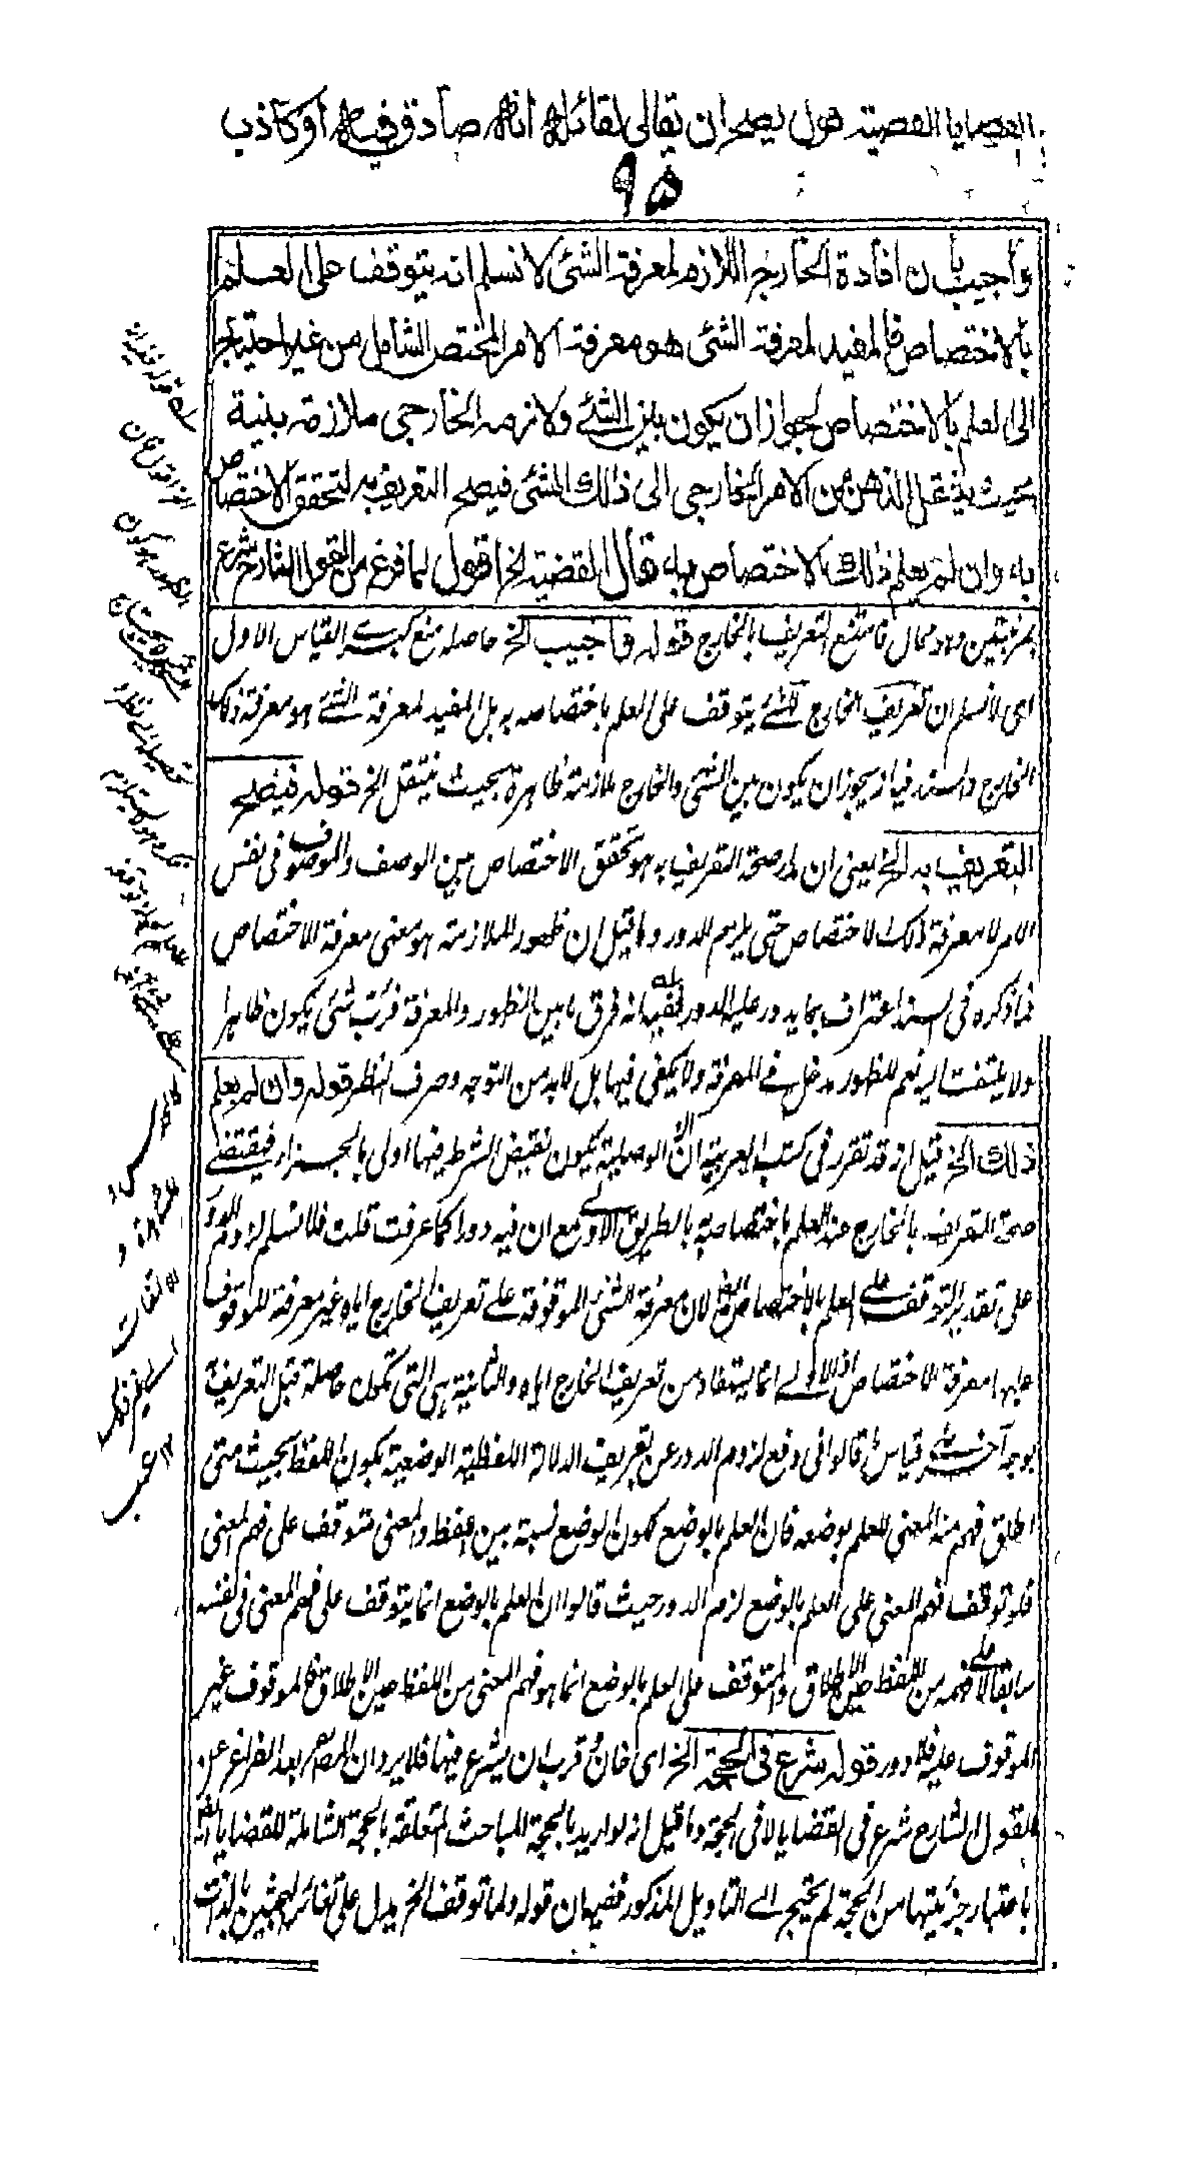 القضايا القضية قول يصح ان يقال لقائله انه صادق فيه او كاذب
٩٥
واجيب بان افادة الخارج اللازم لمعرفة الشئ لا نسلم انه يتوقف على العلم
بالاختصاص فالمفيد لمعرفة الشئ هو معرفة الامر المختص الشامل من غير احتياج
الى العلم بالاختصاص لجواز ان يكون بين الشئ ولازمه الخارجى ملازمة بينة
بحيث ينتقل الذهن من الامر الخارجى الى ذلك الشئ فيصح التعريف به لتحقق الاختصاص
به وان لم يعلم ذلك الاختصاص به قال القضية الخ اقول لما فرغ من القول الشارح شرع
بمرتبتين وهو محال فامتنع التعريف بالخارج قوله واجيب الخ حاصله منع كبرى القياس الاول
اى لا نسلم ان تعريف الخارج للشئ يتوقف على العلم باختصاصه به بل المفيد لمعرفة الشئ هو معرفة ذلك
الخارج والسند فيه انه يجوز ان يكون بين الشئ والخارج ملازمة ظاهرة بحيث ينتقل الخ قوله فيصح
التعريف به الخ يعنى ان مدار صحة التعريف به هو تحقق الاختصاص بين الوصف والموصوف فى نفس
الامر لا معرفة ذلك الاختصاص حتى يلزم الدور وما قيل ان ظهور الملازمة هو معنى معرفة الاختصاص
فما ذكره فى السند اعتراف بما يدور عليه الدور ففيه انه فرق ما بين الظهور والمعرفة فرب شئ يكون ظاهرا
ولا يلتفت اليه نعم للظهور مدخل فى المعرفة ولا يكفى فيها بل لابد من التوجه وصرف النظر قوله وان لم يعلم
ذلك الخ قيل انه قد تقرر فى كتب العربية ان ان الوصلية يكون نقيض الشرط فيها اولى بالجزاء فيقتضى
صحة التعريف بالخارج عند العلم باختصاصه به بالطريق الاولى مع ان فيه دورا كما عرفت قلت فلا نسلم لزوم الدور
على تقدير التوقف على العلم بالاختصاص ايضا لان معرفة الشئ الموقوفة على تعريف الخارج اياه غير معرفة الموقوف
عليها معرفة الاختصاص اذ الاولى انما يستفاد من تعريف الخارج اياه والثانية هى التى تكون حاصلة قبل التعريف
بوجه آخر على قياس ما قالوا فى دفع لزوم الدور عن تعريف الدلالة اللفظية الوضعية بكون اللفظ بحيث متى
اطلق فهم منه المعنى للعلم بوضعه فان العلم بالوضع لكون الوضع نسبة بين اللفظ والمعنى متوقف على فهم المعنى
فلو توقف فهم المعنى على العلم بالوضع لزم الدور حيث قالوا ان العلم بالوضع انما يتوقف على فهم المعنى فى نفسه
سابقا لا على فهمه من اللفظ حين الاطلاق والمتوقف على العلم بالوضع انما هو فهم المعنى من اللفظ حين الاطلاق فالموقوف غير
الموقوف عليه فلا دور قوله شرع فى الحجة الخ اى حان وقرب ان يشرع فيها فلا يرد ان المصنف بعد الفراغ عن
القول الشارح شرع فى القضايا لا فى الحجة وما قيل انه لو اريد بالحجة المباحث المتعلقة بالحجة الشاملة للقضايا
باعتبار جزئيتها من الحجة لم يحتج الى التاويل المذكور ففيه ان قوله ولما توقف الخ يدل على تغائر المبحثين بالذات